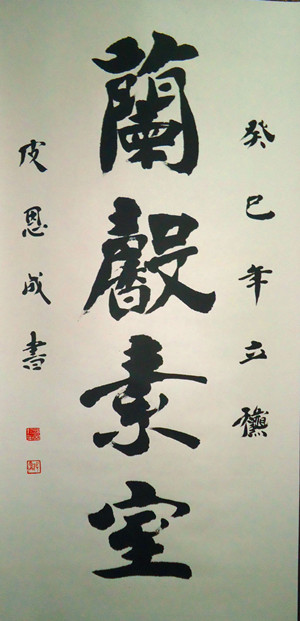 癸巳年立
蘭馨素室
皮恩成書